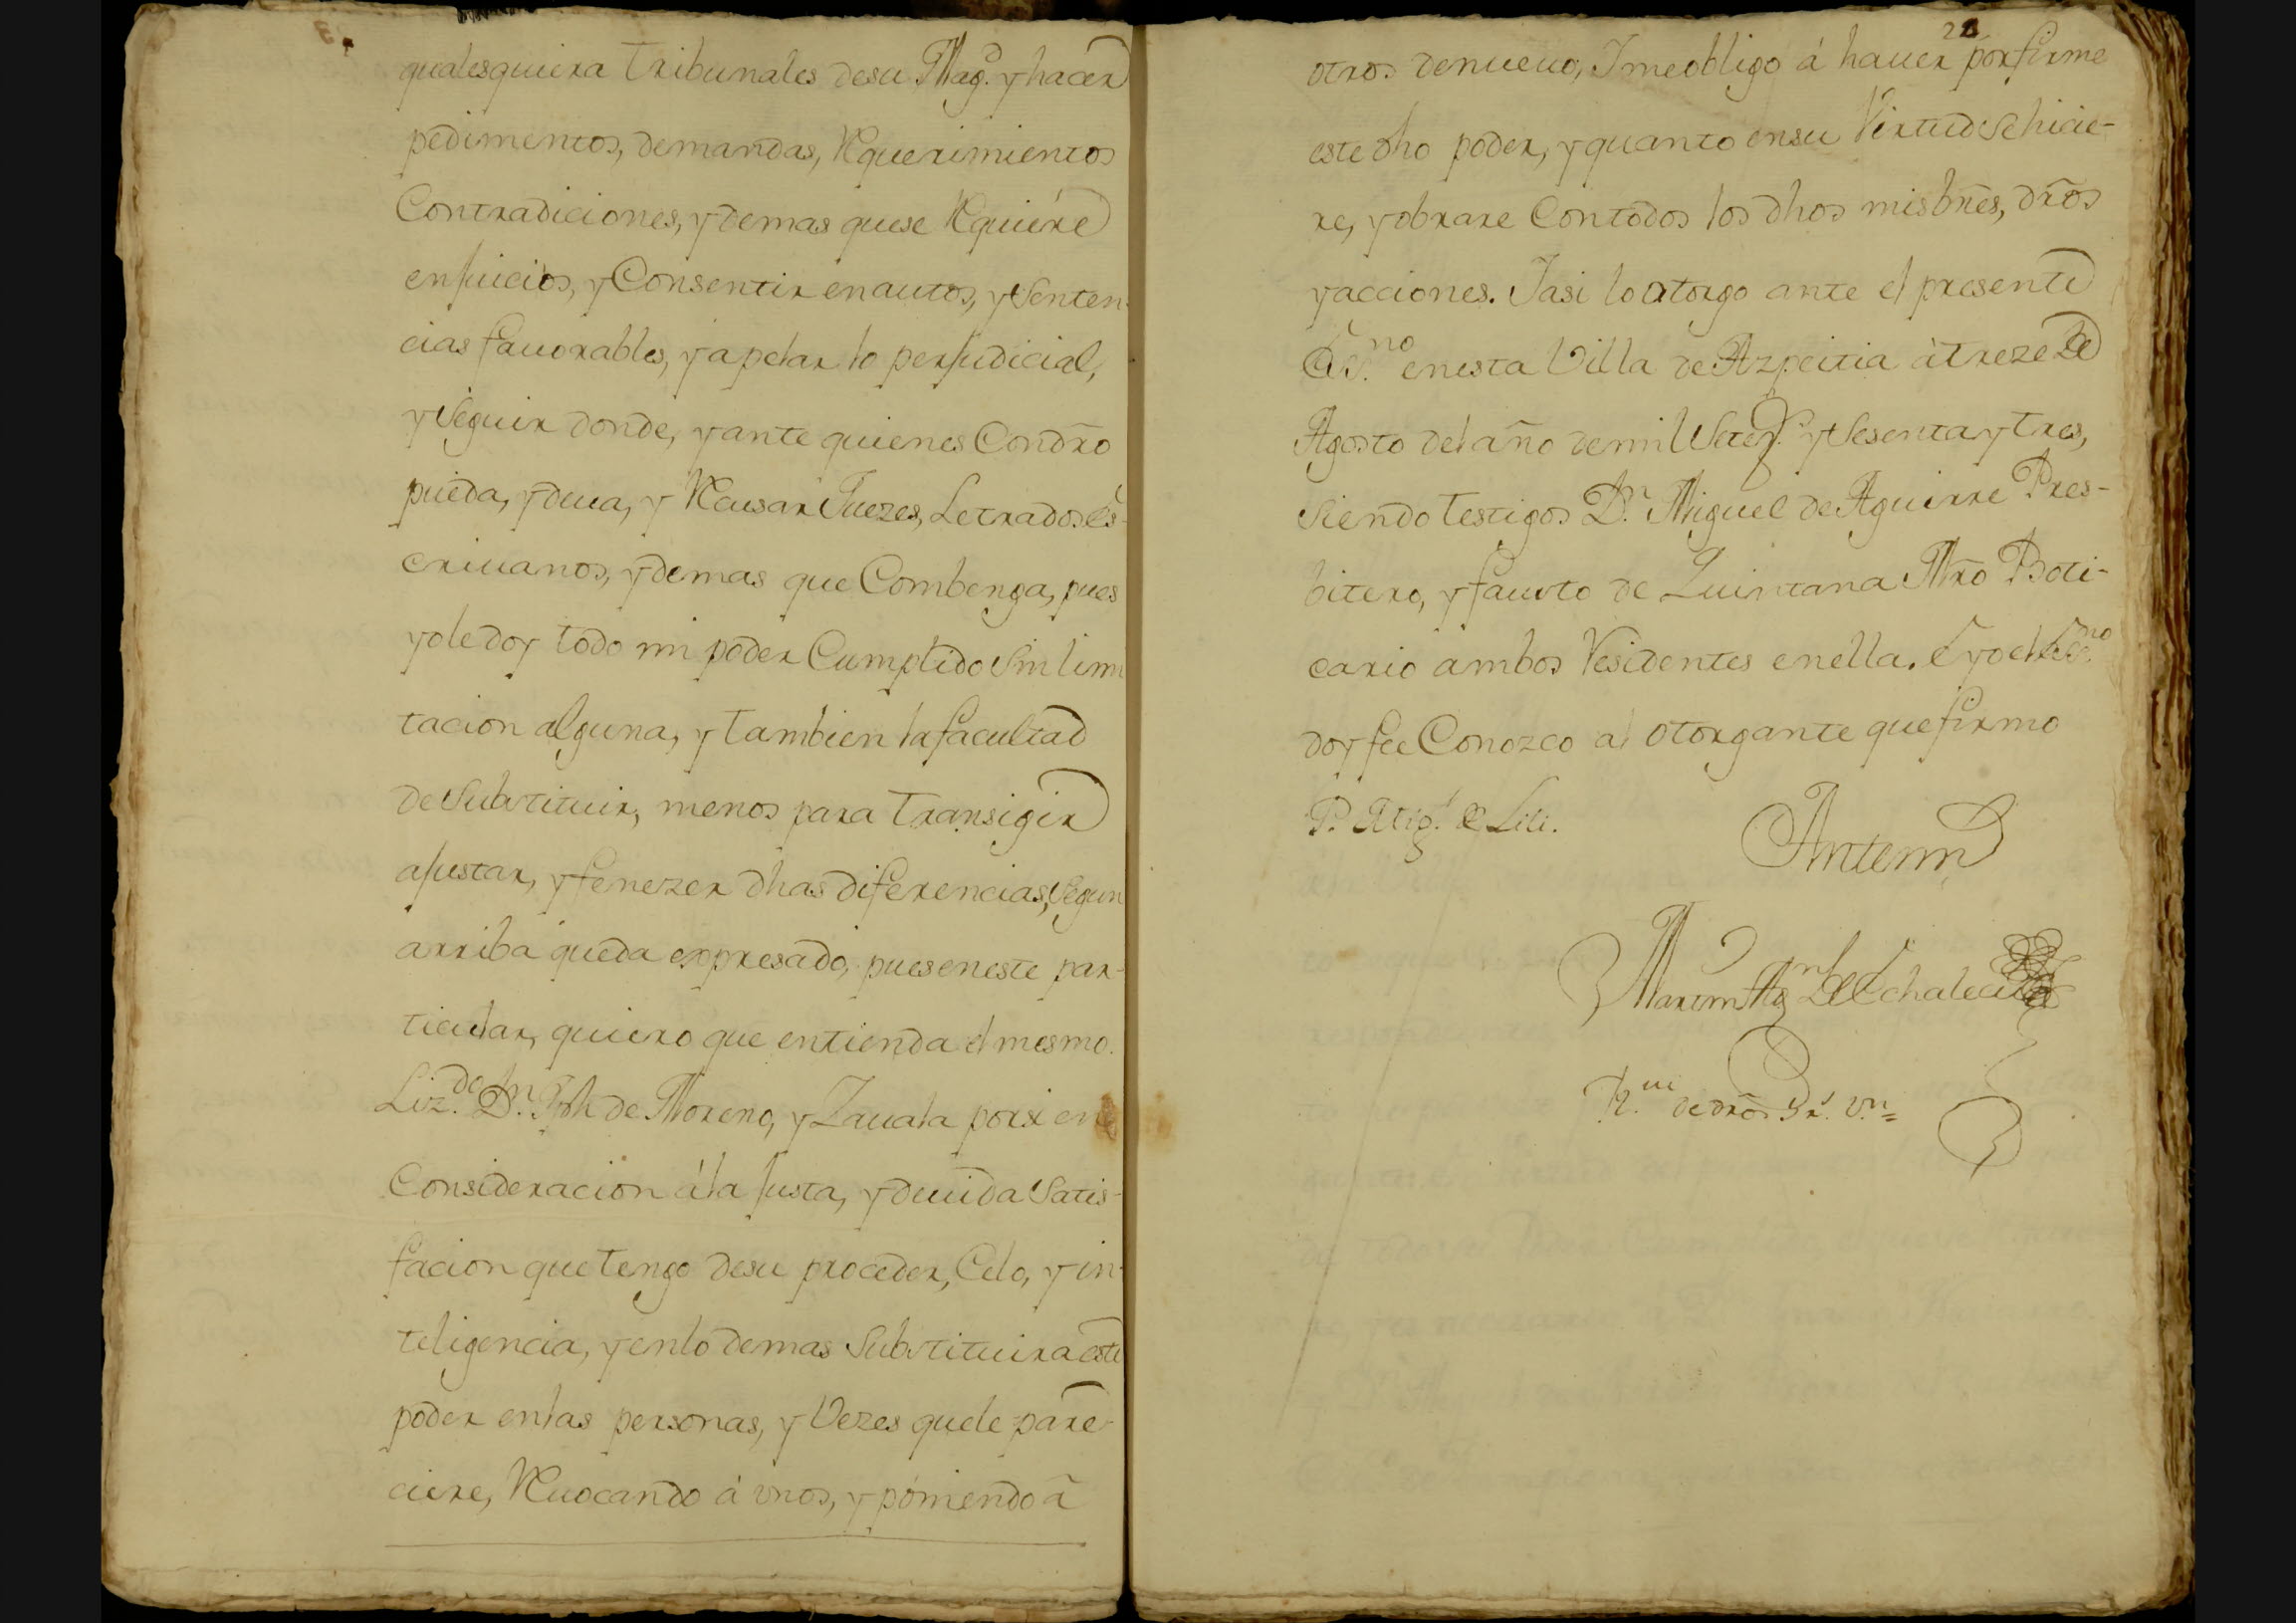 qualesquiera tribunales desu Mag.d y hacer
pedimentos, demandas, Requerimientos
Contradiciones, y demas quese Requiere
enjuicios, y Consentir enautos, y Senten-
cias fauorables, y apelar lo perjudicial,
y Seguir donde, y ante quienes Condr̃o
pueda, y deua, y Recusar Juezes, Letrados Es-
criuanos, y demas que Combenga, pues
yo le doy todo mi poder Cumplido Sin limi
tacion alguna, y tambien la facultad
de Substituir, menos para transigir
ajustar, y fenezer dhas diferencias, Segun
arriba queda expresado, pues eneste par-
ticular, quiero que entienda el mesmo.
Liz.do D.n Jph de Moreno, y Zauala porsi en
Consideracion á la justa, y deuida Satis-
facion que tengo desu proceder, Celo, y in-
teligencia, y enlo demas Substituira este
poder enlas personas, y Vezes quele pare-
ciere, Reuocando á vnos, y poniendo ã
otros denueuo, Y me obligo á hauer por firme
este dho poder, y quanto ensu Virtud Se hicie-
re, y obrare Contodos los dhos mis bñes, dr̃os
y acciones. Y asi lo otorgo ante el presente
Es.no enesta Villa de Azpeitia à treze de
Agosto del año de mil Setez.s y Sesenta y tres,
Siendo testigos D.n Miguel de Aguirre Pres-
bitero, y fausto de Quintana Mr̃o Boti-
cario ambos Residentes enella. E yo el Es.no
doy fee Conozco al otorgante que firmo
P. Atig.l de Lili.
Antemi
Martin Ag.n de Echalecu
R.ui de dr̃os 3 r.s v.n =